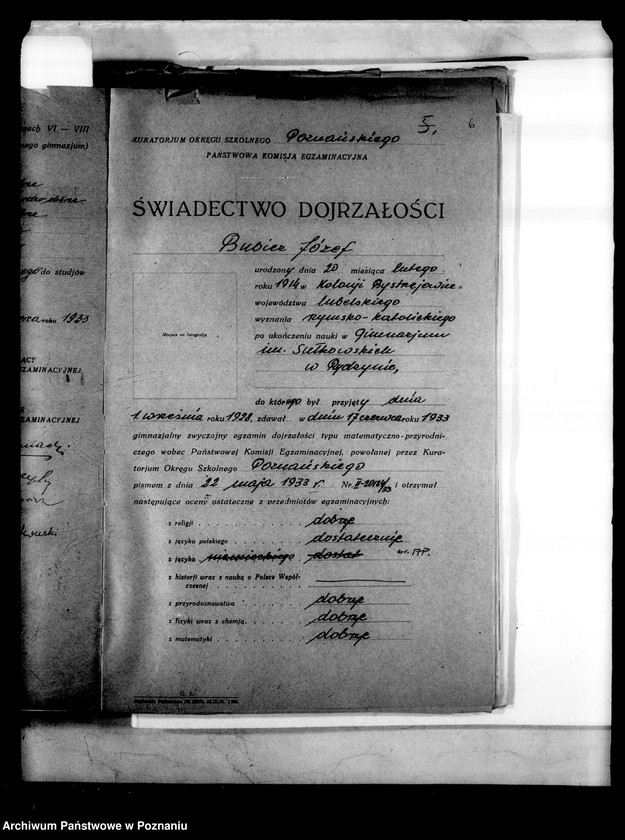 ach VI — VIII
nego gimnazjum)
ego do studjów
roku 1933
ZAMINACYJNEJ
ZAMINACYJNEJ
5/5. 6
KURATORJUM OKRĘGU SZKOLNEGO Poznańskiego
PAŃSTWOWA KOMISJA EGZAMINACYJNA
ŚWIADECTWO DOJRZAŁOŚCI
Bubicz Józef
Miejsce na fotografję
urodzony dnia 20 miesiąca lutego
roku 1914 w Kolonji Bystrzejowice
województwa lubelskiego
wyznania rzymsko-katolickiego
po ukończeniu nauki w Gimnazjum
im. Sułkowskich
w Rydzynie,
do którego był przyjęty dnia
1. września roku 1928, zdawał w dniu 17 czerwca roku 1933
gimnazjalny zwyczajny egzamin dojrzałości typu matematyczno-przyrodni-
czego wobec Państwowej Komisji Egzaminacyjnej, powołanej przez Kura-
torjum Okręgu Szkolnego Poznańskiego
pismem z dnia 22 maja 1933 r. Nr. i otrzymał
następujące oceny ostateczne z przedmiotów egzaminacyjnych:
z religji dobrze
z języka polskiego dostatecznie
z języka niemieckiego dostat
z historji wraz z nauką o Polsce Współ-
czesnej
z przyrodoznawstwa dobrze
z fizyki wraz z chemją dobrze
z matematyki dobrze
G. 1.